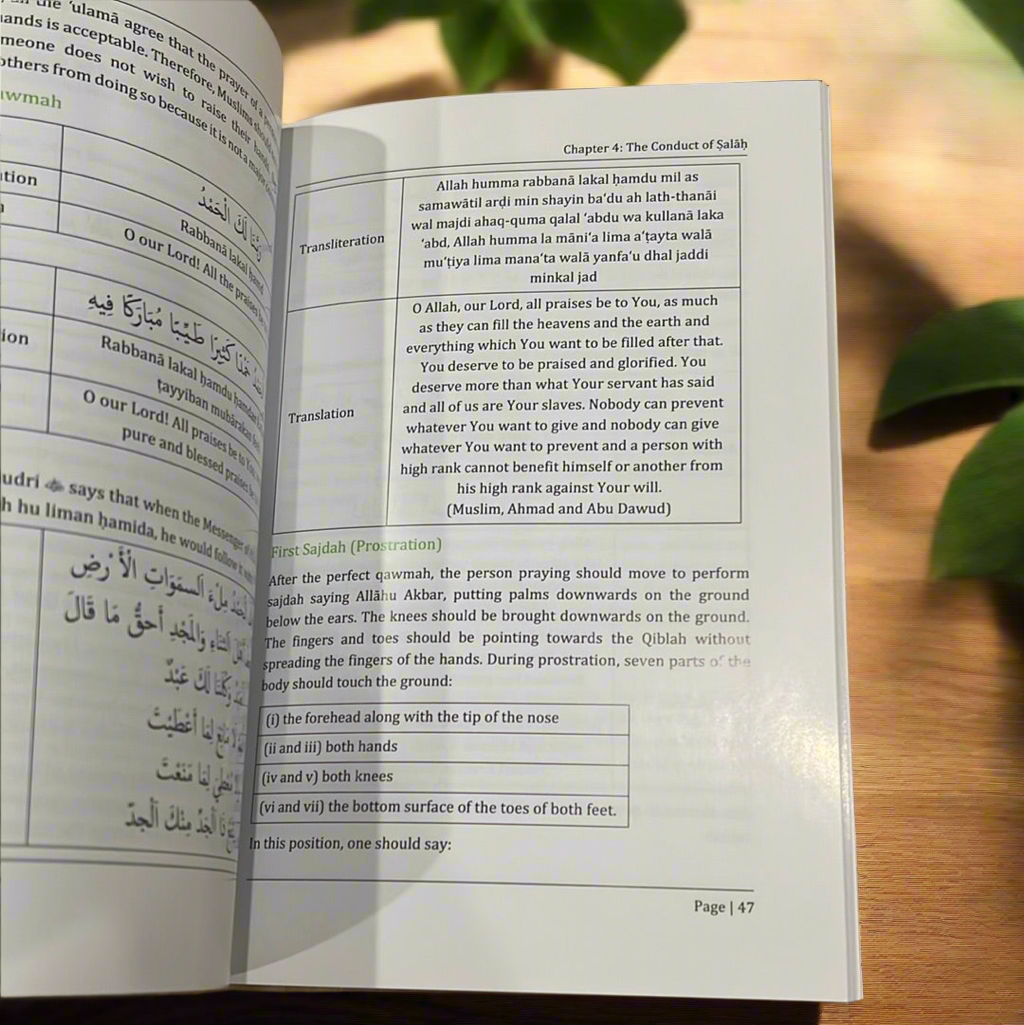 the ‘ulamā agree that the prayer of a
hands is acceptable. Therefore, Muslims should
someone does not wish to raise their hands,
others from doing so because it is not a major
awmah
رَبَّنَا لَكَ الْحَمْدُ
Rabbanā lakal ḥamd
O our Lord! All the praises be
حَمْدًا كَثِيْرًا طَيِّبًا مُبَارَكًا فِيهِ
Rabbanā lakal ḥamdu ḥamdan
ṭayyiban mubārakan
O our Lord! All praises be to You
pure and blessed praises be
udri says that when the Messenger of
h hu liman ḥamida, he would follow it
مِلْءَ السَمَوَاتِ الْأَرْضِ
الثَنَاءِ وَالْمَجْدِ أَحقُّ مَا قَالَ
وَكُلُّنَا لَكَ عَبْدٌ
مَانِعَ لِمَا أَعْطَيْتَ
لِمَا مَنَعْتَ
الْجَدِّ مِنْكَ اَلْجدّ
Chapter 4: The Conduct of Ṣalāḥ
Transliteration
Allah humma rabbanā lakal ḥamdu mil as
samawātil arḍi min shayin ba‘du ah lath-thanāi
wal majdi ahaq-quma qalal ‘abdu wa kullanā laka
‘abd, Allah humma la māni‘a lima a‘ṭayta walā
mu‘ṭiya lima mana‘ta walā yanfa‘u dhal jaddi
minkal jad
Translation
O Allah, our Lord, all praises be to You, as much
as they can fill the heavens and the earth and
everything which You want to be filled after that.
You deserve to be praised and glorified. You
deserve more than what Your servant has said
and all of us are Your slaves. Nobody can prevent
whatever You want to give and nobody can give
whatever You want to prevent and a person with
high rank cannot benefit himself or another from
his high rank against Your will.
(Muslim, Ahmad and Abu Dawud)
First Sajdah (Prostration)
After the perfect qawmah, the person praying should move to perform
sajdah saying Allāhu Akbar, putting palms downwards on the ground
below the ears. The knees should be brought downwards on the ground.
The fingers and toes should be pointing towards the Qiblah without
spreading the fingers of the hands. During prostration, seven parts of the
body should touch the ground:
(i) the forehead along with the tip of the nose
(ii and iii) both hands
(iv and v) both knees
(vi and vii) the bottom surface of the toes of both feet.
In this position, one should say:
Page | 47